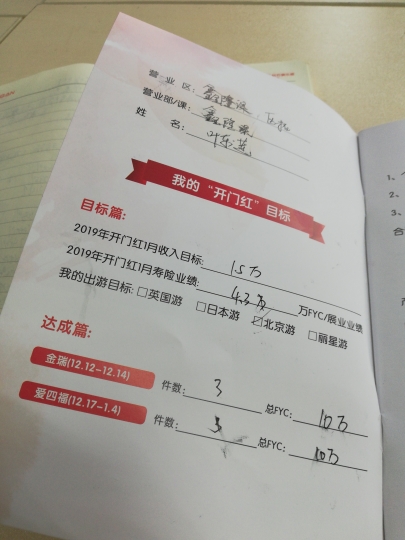 营业区: 鑫隆
营业部/课: 鑫隆
姓 名: 叶东英
我的“开门红”目标
目标篇:
2019年开门红1月收入目标: 15万
2019年开门红1月寿险业绩: 4.3万 万FYC/展业业绩
我的出游目标: □英国游 □日本游 ☑北京游 □丽星游
达成篇:
金瑞(12.12-12.14) 件数: 3 总FYC: 10万
爱四福(12.17-1.4) 件数: 3 总FYC: 10万
1、
2、
3、
合